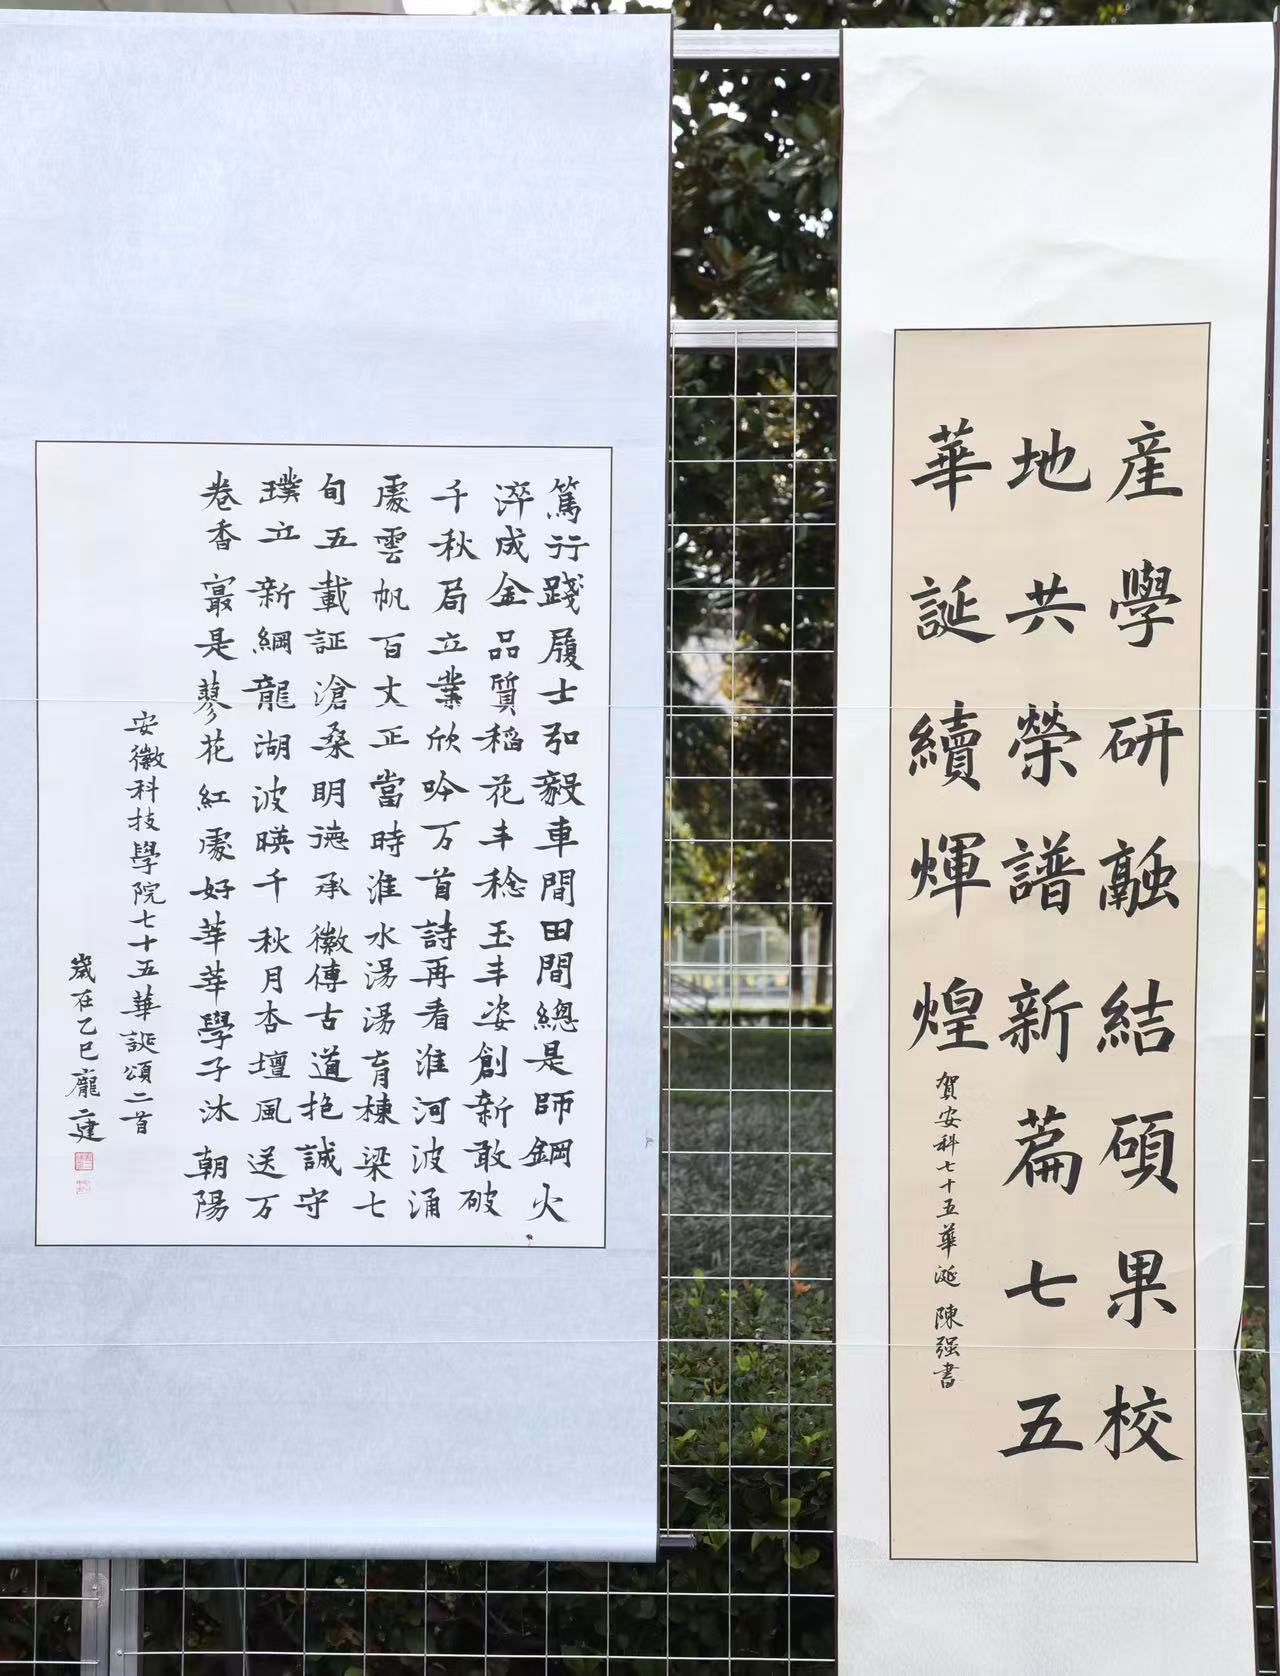 産學研融結碩果校
地共榮譜新篇七五
華誕續輝煌
賀安科七十五華誕 陳强書
篤行踐履士弘毅車間田間總是師鋼火
淬成金品質稻花丰稔玉丰姿創新敢破
千秋局立業欣吟万首詩再看淮河波涌
處雲帆百丈正當時淮水湯湯育棟梁七
旬五載証滄桑明德承徽傳古道抱誠守
璞立新綱龍湖波暎千秋月杏壇風送万
卷香㝡是蓼花紅處好莘莘學子沐朝陽
安徽科技學院七十五華誕頌二首
歲在乙巳龐建